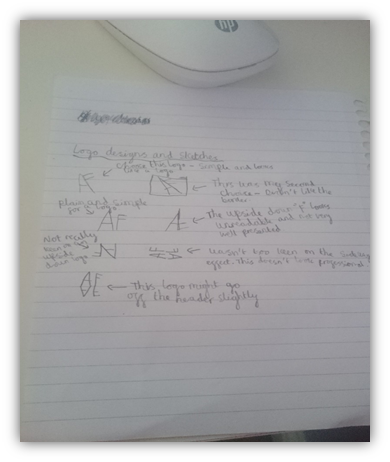 hp
Logo designs and sketches
Choose this logo - Simple and looks
like a logo
AF
This was my second
choice - Didn't like the
border
Plain and simple
for a logo
AF
The upside down "F" looks
unreadable and not very
well presented
Not really
keen on the
upside
down logo
Wasn't too keen on the
effect. This doesn't look professional.
This logo might go
off the header slightly